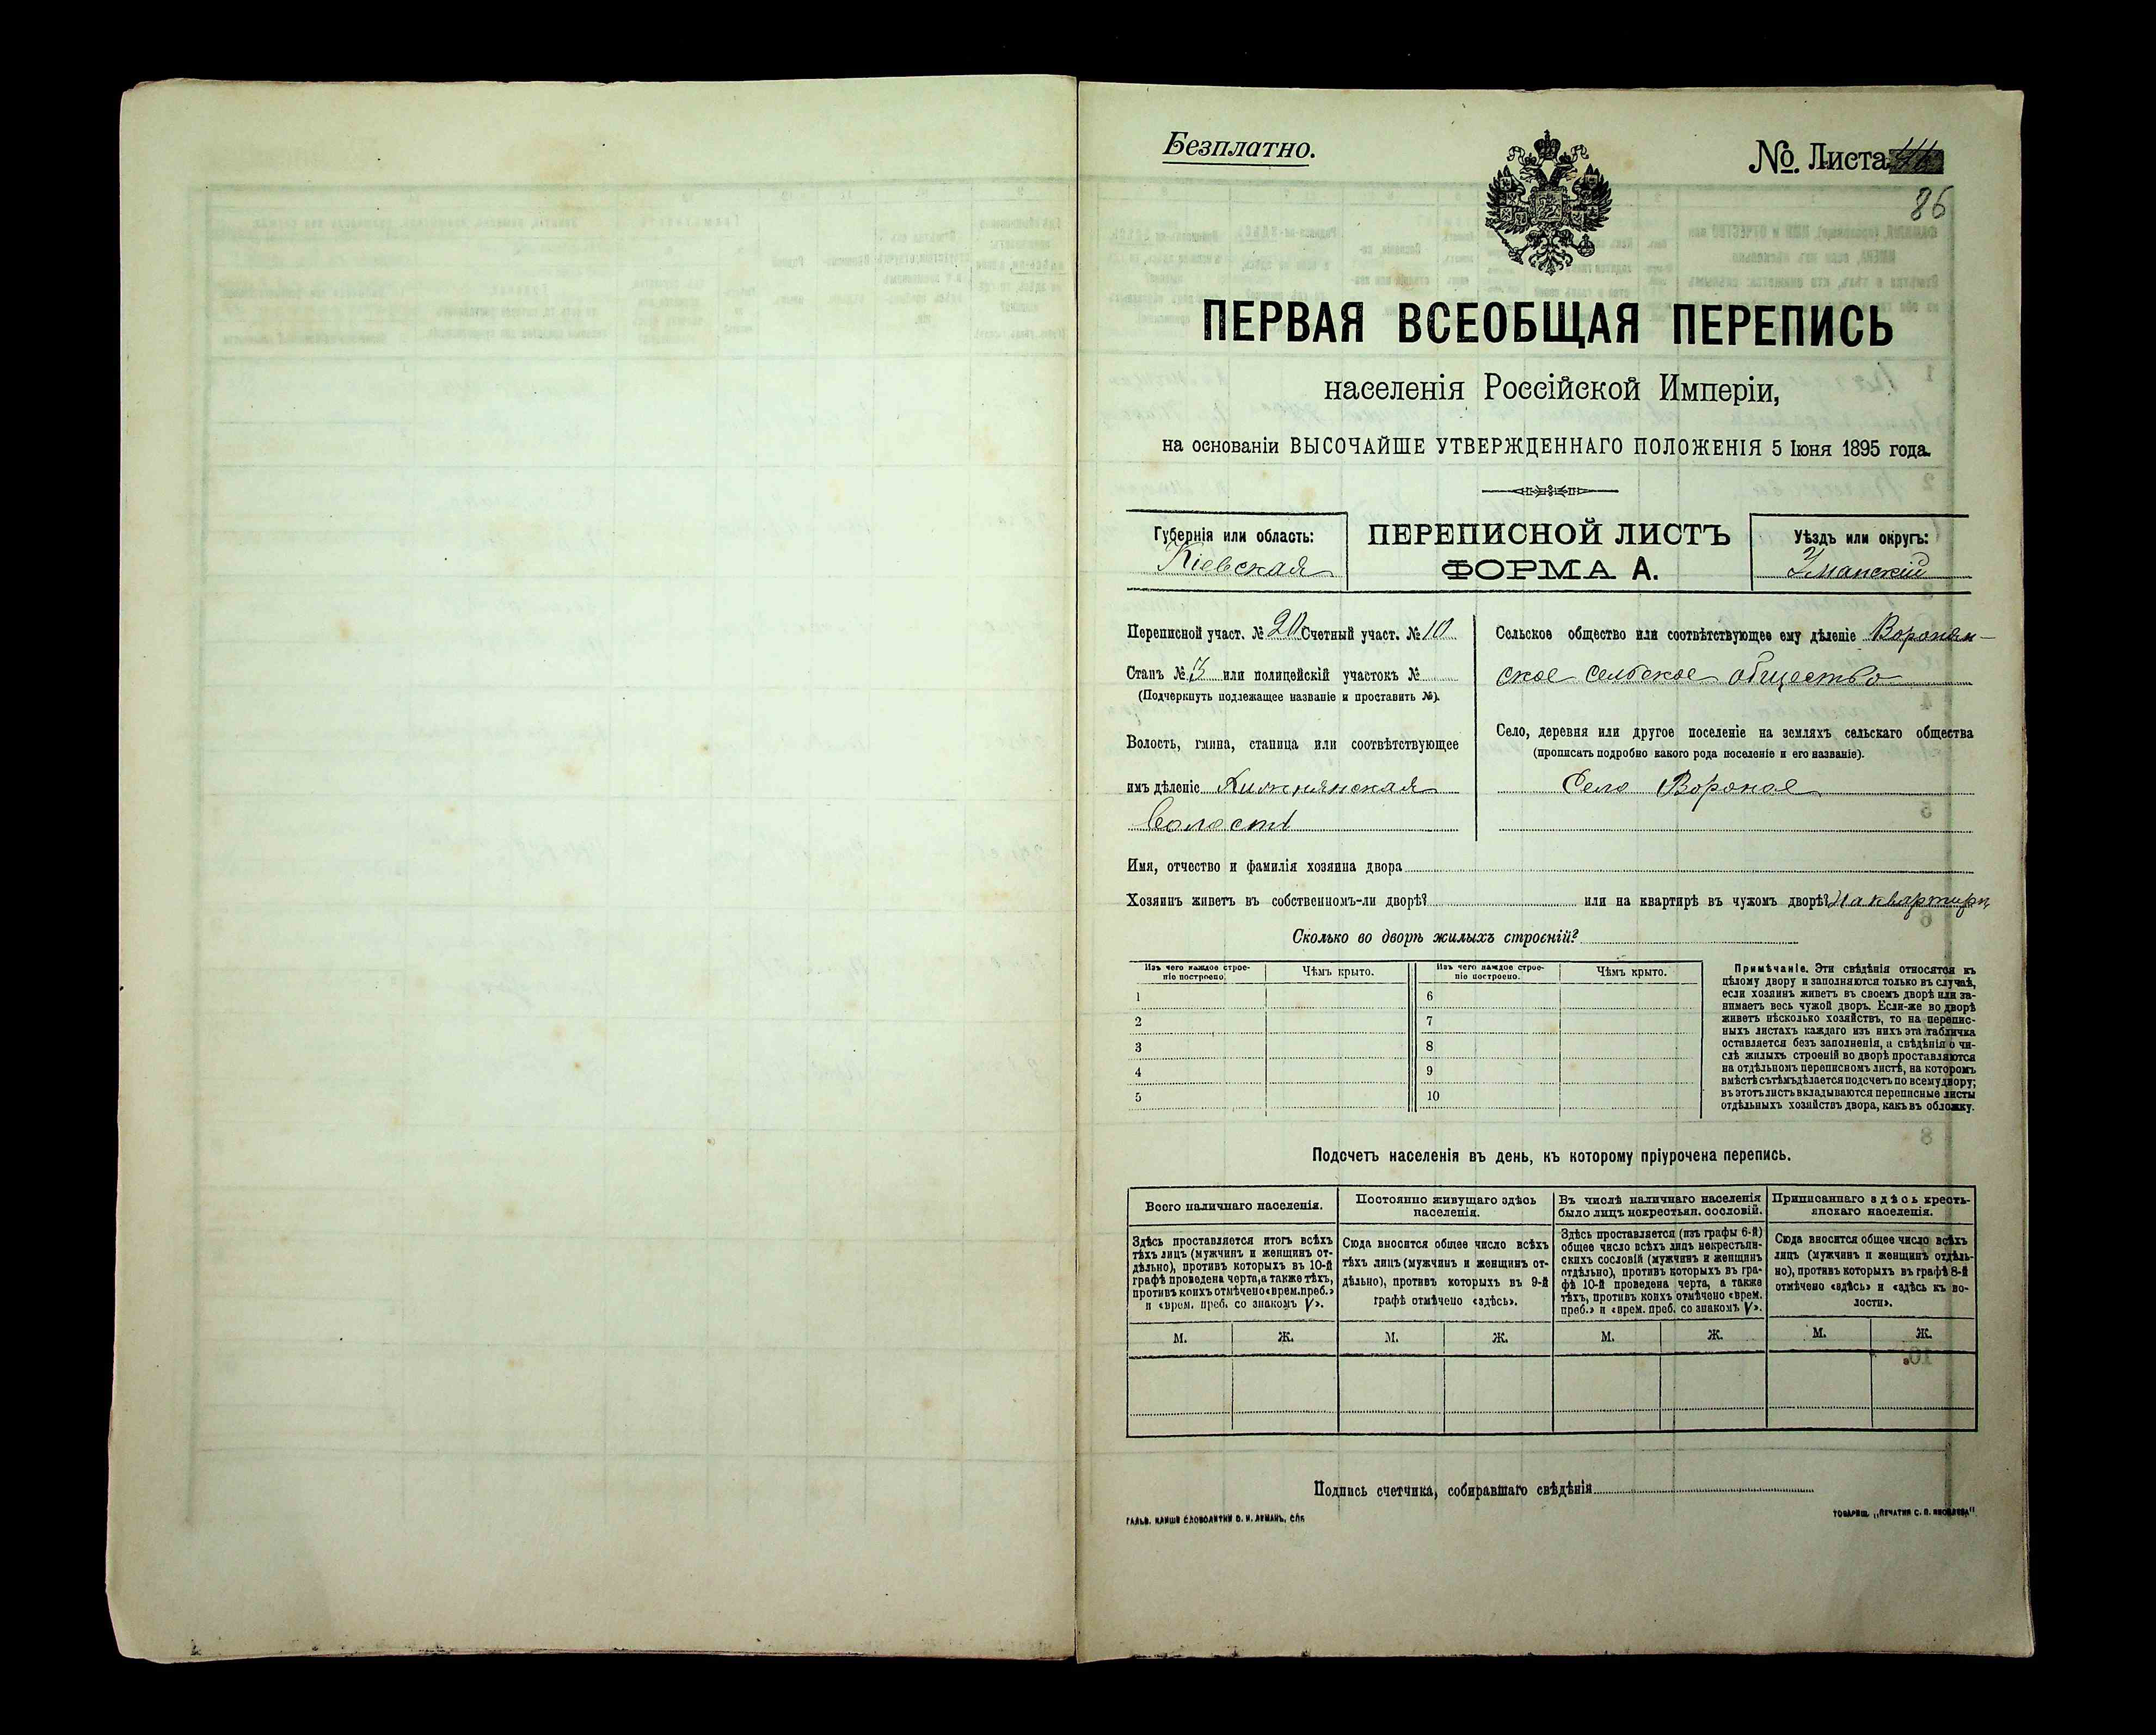 Безплатно.
№. Листа
86
ПЕРВАЯ ВСЕОБЩАЯ ПЕРЕПИСЬ
населенія Россійской Имперіи,
на основаніи ВЫСОЧАЙШЕ УТВЕРЖДЕННАГО ПОЛОЖЕНІЯ 5 Іюня 1895 года.
Губернія или область:
Кіевская
ПЕРЕПИСНОЙ ЛИСТЪ
ФОРМА А.
Уѣздъ или округъ:
Уманскій
Переписной участ. № 20 Счетный участ. № 10
Станъ № 3 или полицейскій участокъ №
(Подчеркнуть подлежащее названіе и проставить №).
Волость, гмина, станица или соотвѣтствующее
имъ дѣленіе
Волость
Сельское общество или соотвѣтствующее ему дѣленіе Воронян-
ское сельское общество
Село, деревня или другое поселеніе на земляхъ сельскаго общества
(прописать подробно какого рода поселеніе и его названіе).
Село Вороное
Имя, отчество и фамилія хозяина двора
Хозяинъ живетъ въ собственномъ-ли дворѣ? или на квартирѣ въ чужомъ дворѣ? На квартирѣ
Сколько во дворѣ жилыхъ строеній?
Изъ чего каждое строе-
ніе построено.
Чѣмъ крыто.
Изъ чего каждое строе-
ніе построено.
Чѣмъ крыто.
1 6
2 7
3 8
4 9
5 10
Примѣчаніе. Эти свѣдѣнія относятся къ
цѣлому двору и заполняются только въ случаѣ,
если хозяинъ живетъ въ своемъ дворѣ или за-
нимаетъ весь чужой дворъ. Если-же во дворѣ
живетъ нѣсколько хозяйствъ, то на перепис-
ныхъ листахъ каждаго изъ нихъ эта табличка
оставляется безъ заполненія, а свѣдѣнія о чи-
слѣ жилыхъ строеній во дворѣ проставляются
на отдѣльномъ переписномъ листѣ, на которомъ
вмѣстѣ сътѣмъ дѣлается подсчетъ по всему двору;
въ этотъ листъ вкладываются переписные листы
отдѣльныхъ хозяйствъ двора, какъ въ обложку.
Подсчетъ населенія въ день, къ которому пріурочена перепись.
Всего наличнаго населенія.
Здѣсь проставляется итогъ всѣхъ
тѣхъ лицъ (мужчинъ и женщинъ от-
дѣльно), противъ которыхъ въ 10-й
графѣ проведена черта, а также тѣхъ,
противъ коихъ отмѣчено «врем. преб.»
и «врем. преб. со знакомъ V».
М. Ж.
Постоянно живущаго здѣсь
населенія.
Сюда вносится общее число всѣхъ
тѣхъ лицъ (мужчинъ и женщинъ от-
дѣльно), противъ которыхъ въ 9-й
графѣ отмѣчено «здѣсь».
М. Ж.
Въ числѣ наличнаго населенія
было лицъ некрестьян. сословій.
Здѣсь проставляется (изъ графы 6-й)
общее число всѣхъ лицъ некрестьян-
скихъ сословій (мужчинъ и женщинъ
отдѣльно), противъ которыхъ въ гра-
фѣ 10-й проведена черта, а также
тѣхъ, противъ коихъ отмѣчено «врем.
преб.» и «врем. преб. со знакомъ V».
М. Ж.
Приписаннаго здѣсь кресть-
янскаго населенія.
Сюда вносится общее число всѣхъ
лицъ (мужчинъ и женщинъ отдѣль-
но), противъ которыхъ въ графѣ 8-й
отмѣчено «здѣсь» и «здѣсь къ во-
лости».
М. Ж.
Подпись счетчика, собиравшаго свѣдѣнія
ГАЛЬВ. КЛИШЕ СЛОВОЛИТНИ О. И. ЛЕМАНЪ, СПБ
ТОВАРИЩ. „ПЕЧАТНЯ С. П. ЯКОВЛЕВА“